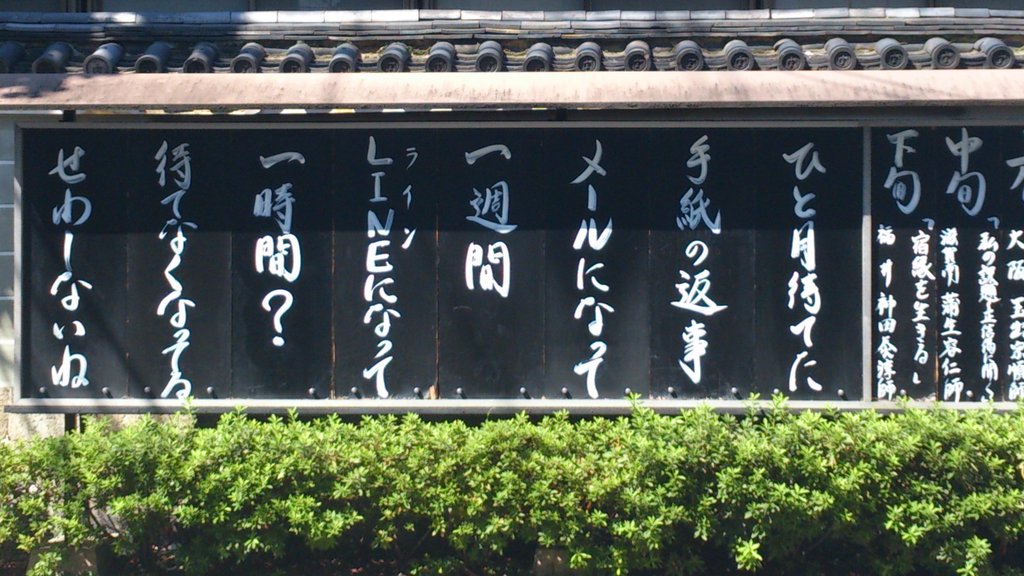 大阪
中旬
「私の
に聞く
滋賀南 蒲生
仁師
下旬
「宿縁を生きる」
福井 神田
師
ひと月待てた
手紙の返事
メールになって
一週間
ライン
LINEになって
一時間？
待てなくなってる
せわしないね